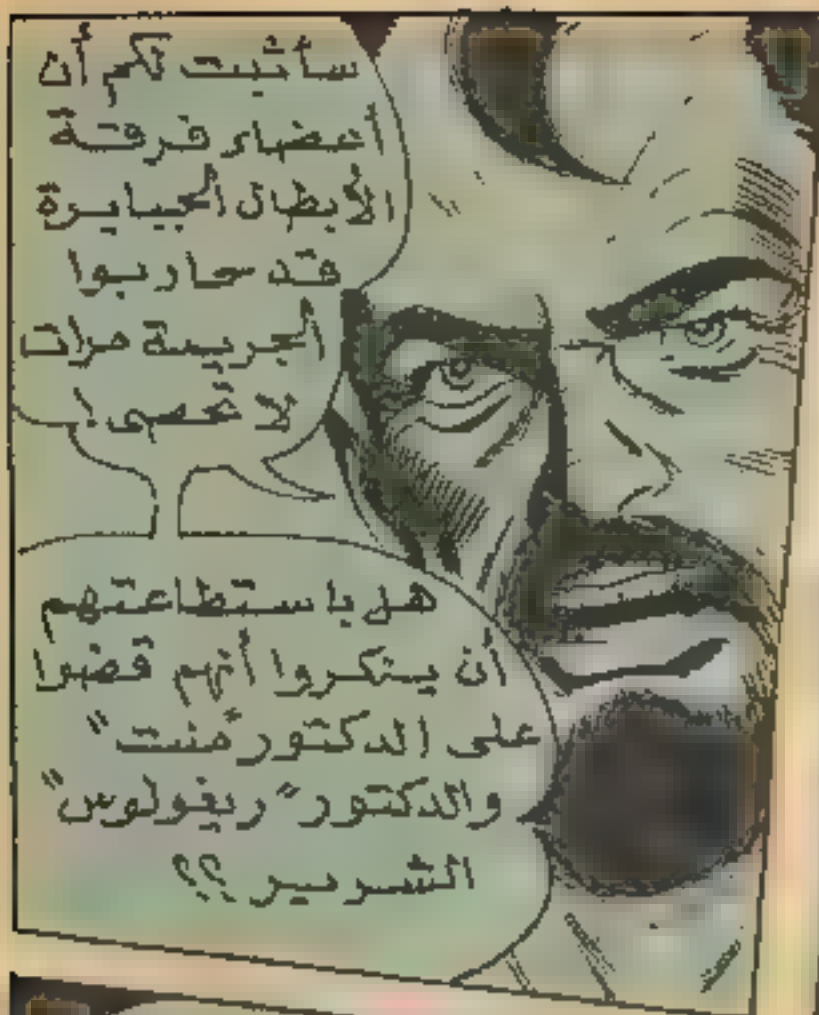 سأثبت لكم أن
أعضاء فرقة
الأبطال الجبابرة
قد حاربوا
الجريمة مرات
لا تحصى!
هل باستطاعتهم
أن ينكروا أنهم قضوا
على الدكتور "منت"
والدكتور "ريغولوس"
الشرير؟؟